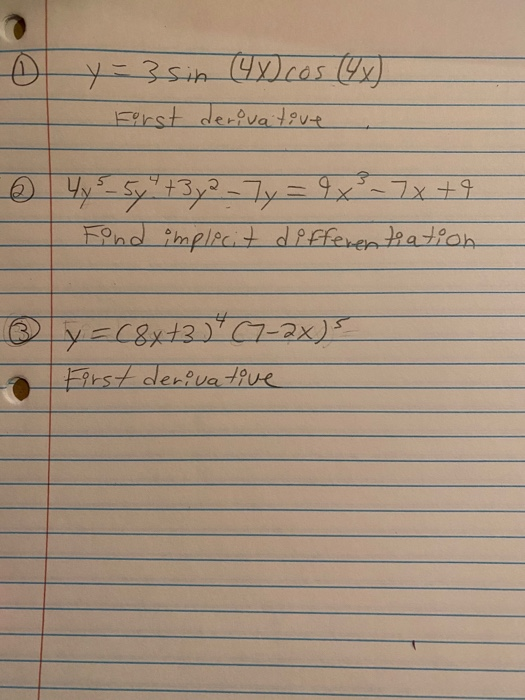 ① y = 3 sin (4x) cos (4x)
First derivative
② 4y⁵ - 5y⁴ + 3y² - 7y = 9x³ - 7x + 9
Find implicit differentiation
③ y = (8x+3)⁴ (7-2x)⁵
First derivative